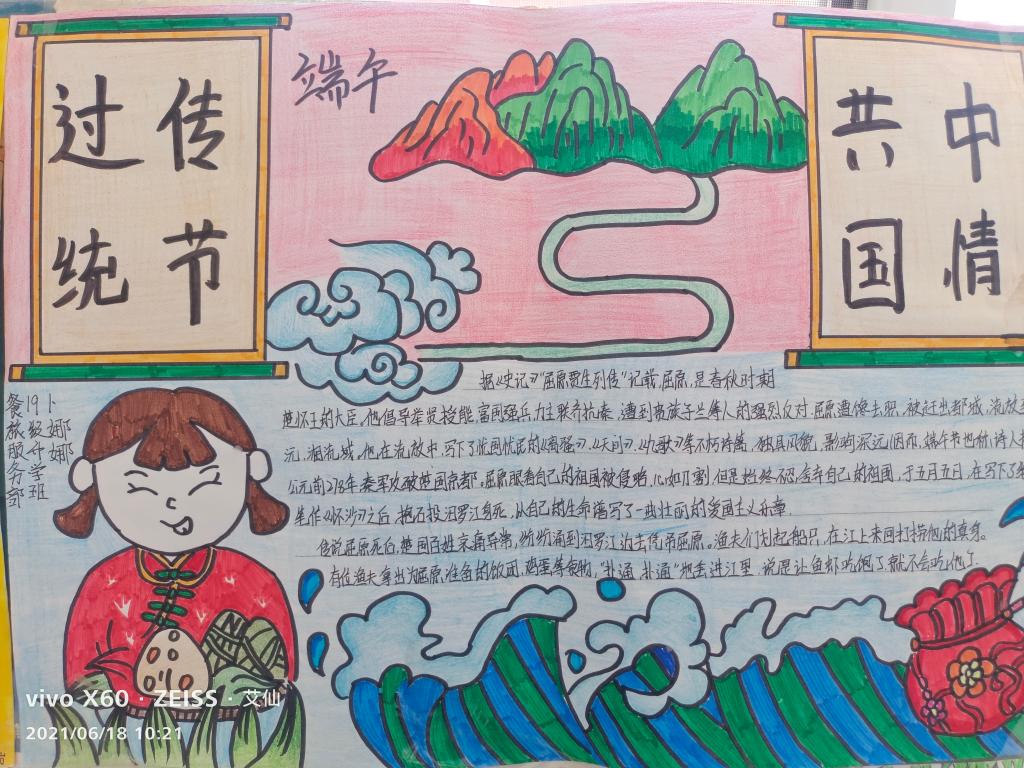 传节
过统
端午
中情
共国
据《史记》"屈原贾生列传"记载,屈原,是春秋时期
楚怀王的大臣,他倡导举贤授能,富国强兵,力主联齐抗秦,遭到贵族子兰等人的强烈反对,屈原遭馋去职,被赶出都城,流放
元、湘流域,他在流放中,写下了忧国忧民的《离骚》、《天问》、《九歌》等不朽诗篇,独具风貌,影响深远,因而,端午节也称诗人
公元前278年,秦军攻破楚国京都。屈原眼看自己的祖国被侵略,心如刀割,但是始终不忍舍弃自己的祖国,于五月五日,在写下了
笔作《怀沙》之后,抱石投汨罗江身死,以自己的生命谱写了一曲壮丽的爱国主义乐章
传说屈原死后,楚国百姓哀痛异常,纷纷涌到汨罗江边去凭吊屈原。渔夫们划起船只,在江上来回打捞他的真身。
有位渔夫拿出为屈原准备的饭团、鸡蛋等食物,"扑通、扑通"地丢进江里,说是让鱼虾吃饱了,就不会吃他了
餐旅服务部
19级升学班
卜娜娜
vivo X60 · ZEISS · 艾仙
2021/06/18 10:21